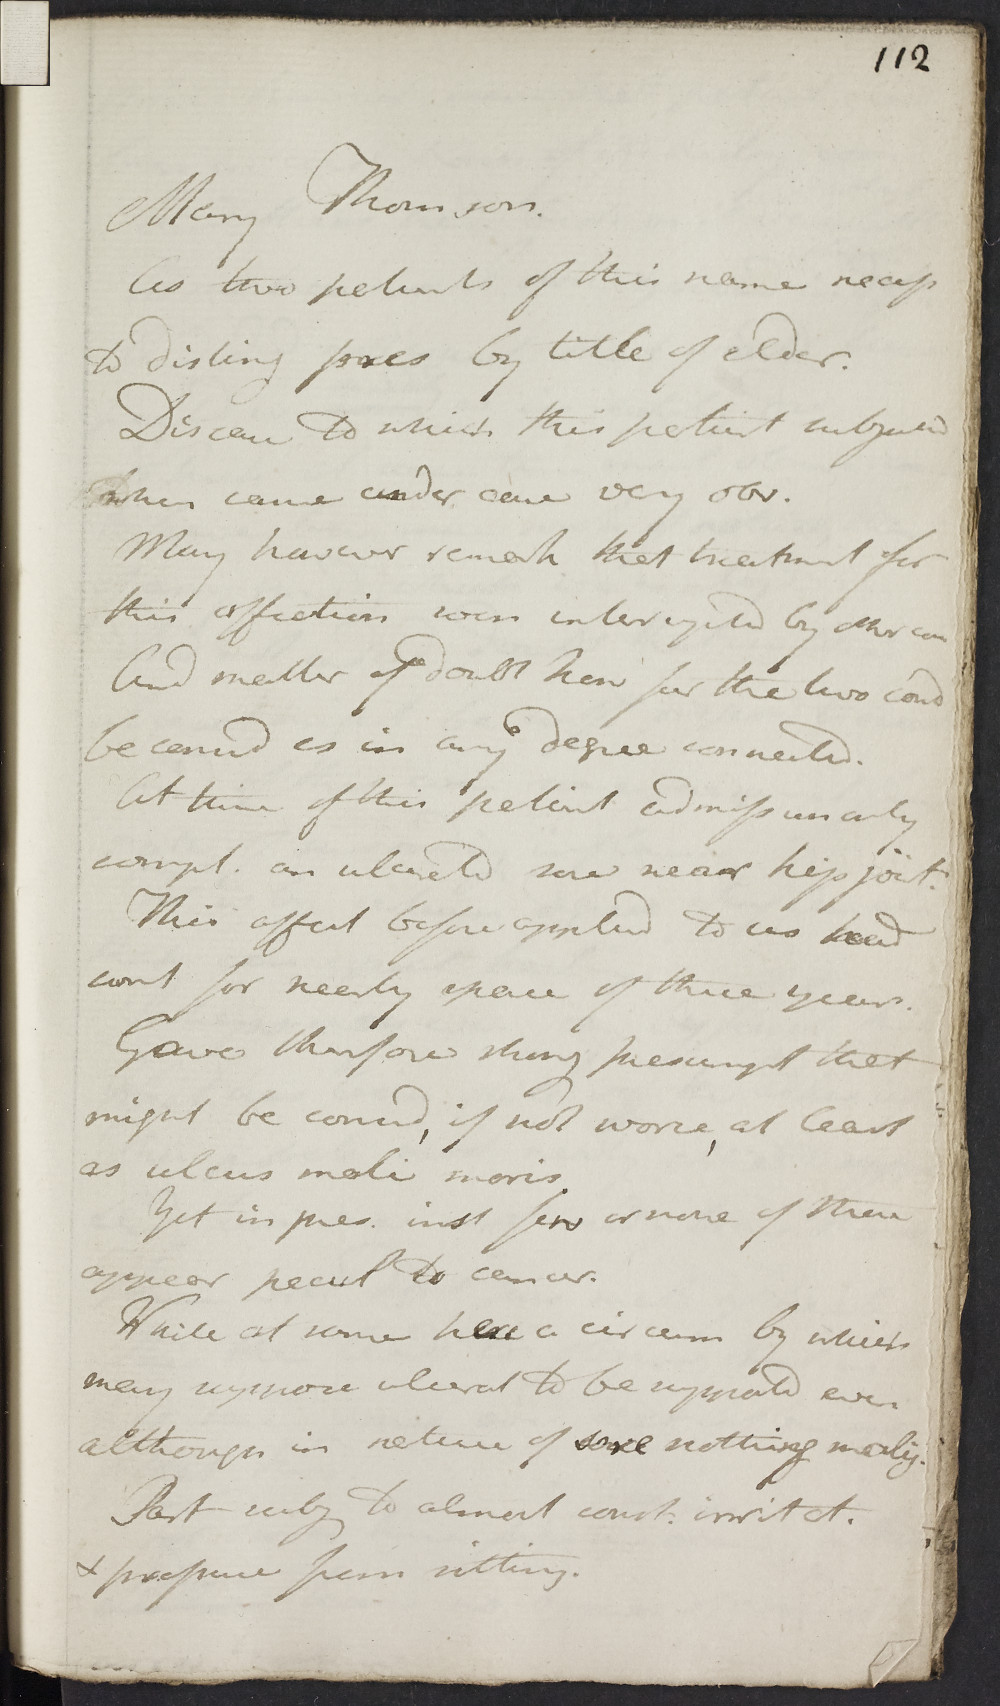 112
Mary Thomson.
As two patients of this name necess
to disting pres by title of elder.
Disease to which this patient subjected
when came under care very obv.
May however remark that treatment for
this affection was interrupted by other
And matter of doubt how far the two coud
be consid as in any degree connected.
At time of this patient admiss
compl. an ulcerated sore near hip joint.
This affect before applied to us had
cont for nearly space of three years.
Gave therefore strong presumpt that
might be consid, if not worse, at least
as ulcus mali moris
Yet in pres. inst few or none of these
appear pecul to cancer.
While at same here a circum by which
may suppose ulcerat to be supported even
although in nature of sore nothing malig.
Part subj to almost const. irritat.
& pressure from sitting.